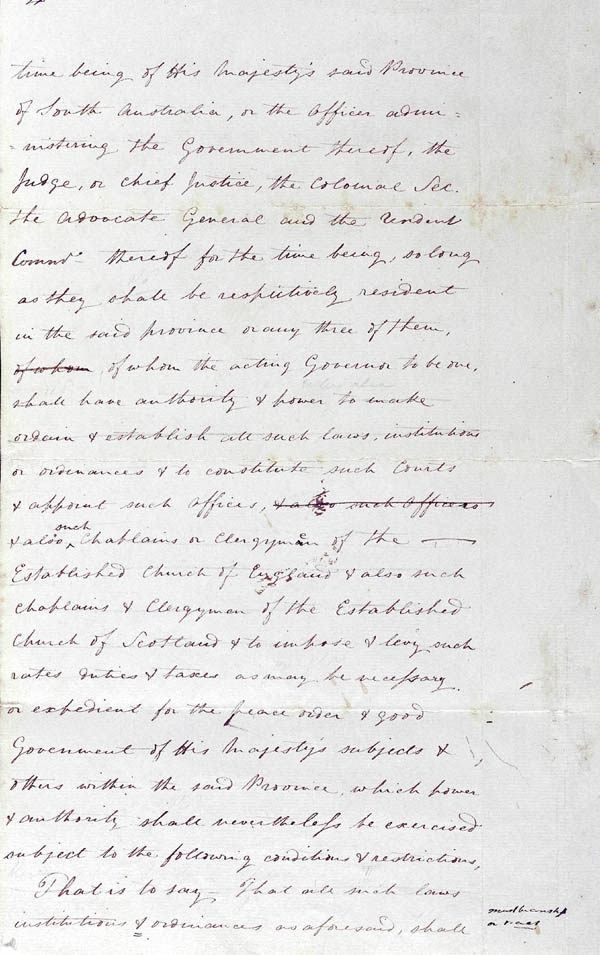 time being of His Majesty's said Province
of South Australia, or the Officer admin=
=nistering the Government thereof, the
Judge, or Chief Justice, the Colonial Sec.
the Advocate General and the
Comnr. thereof for the time being, so long
as they shall be respectively resident
in the said province or any three of them,
of whom of whom the acting Governor to be one,
shall have authority & power to make
ordain & establish all such laws, institutions
or ordinances & to constitute such Courts
& appoint such officers, & also such Officers
& also such Chaplains or Clergymen of the
Established Church of England & also such
Chaplains & Clergymen of the Established
Church of Scotland & to impose & levy such
rates duties & taxes as may be necessary
or expedient for the peace order & good
Government of His Majesty's subjects &
others within the said Province, which power
& authority shall nevertheless be exercised
subject to the following conditions & restrictions,
That is to say - That all such laws
institutions & ordinances as aforesaid, shall